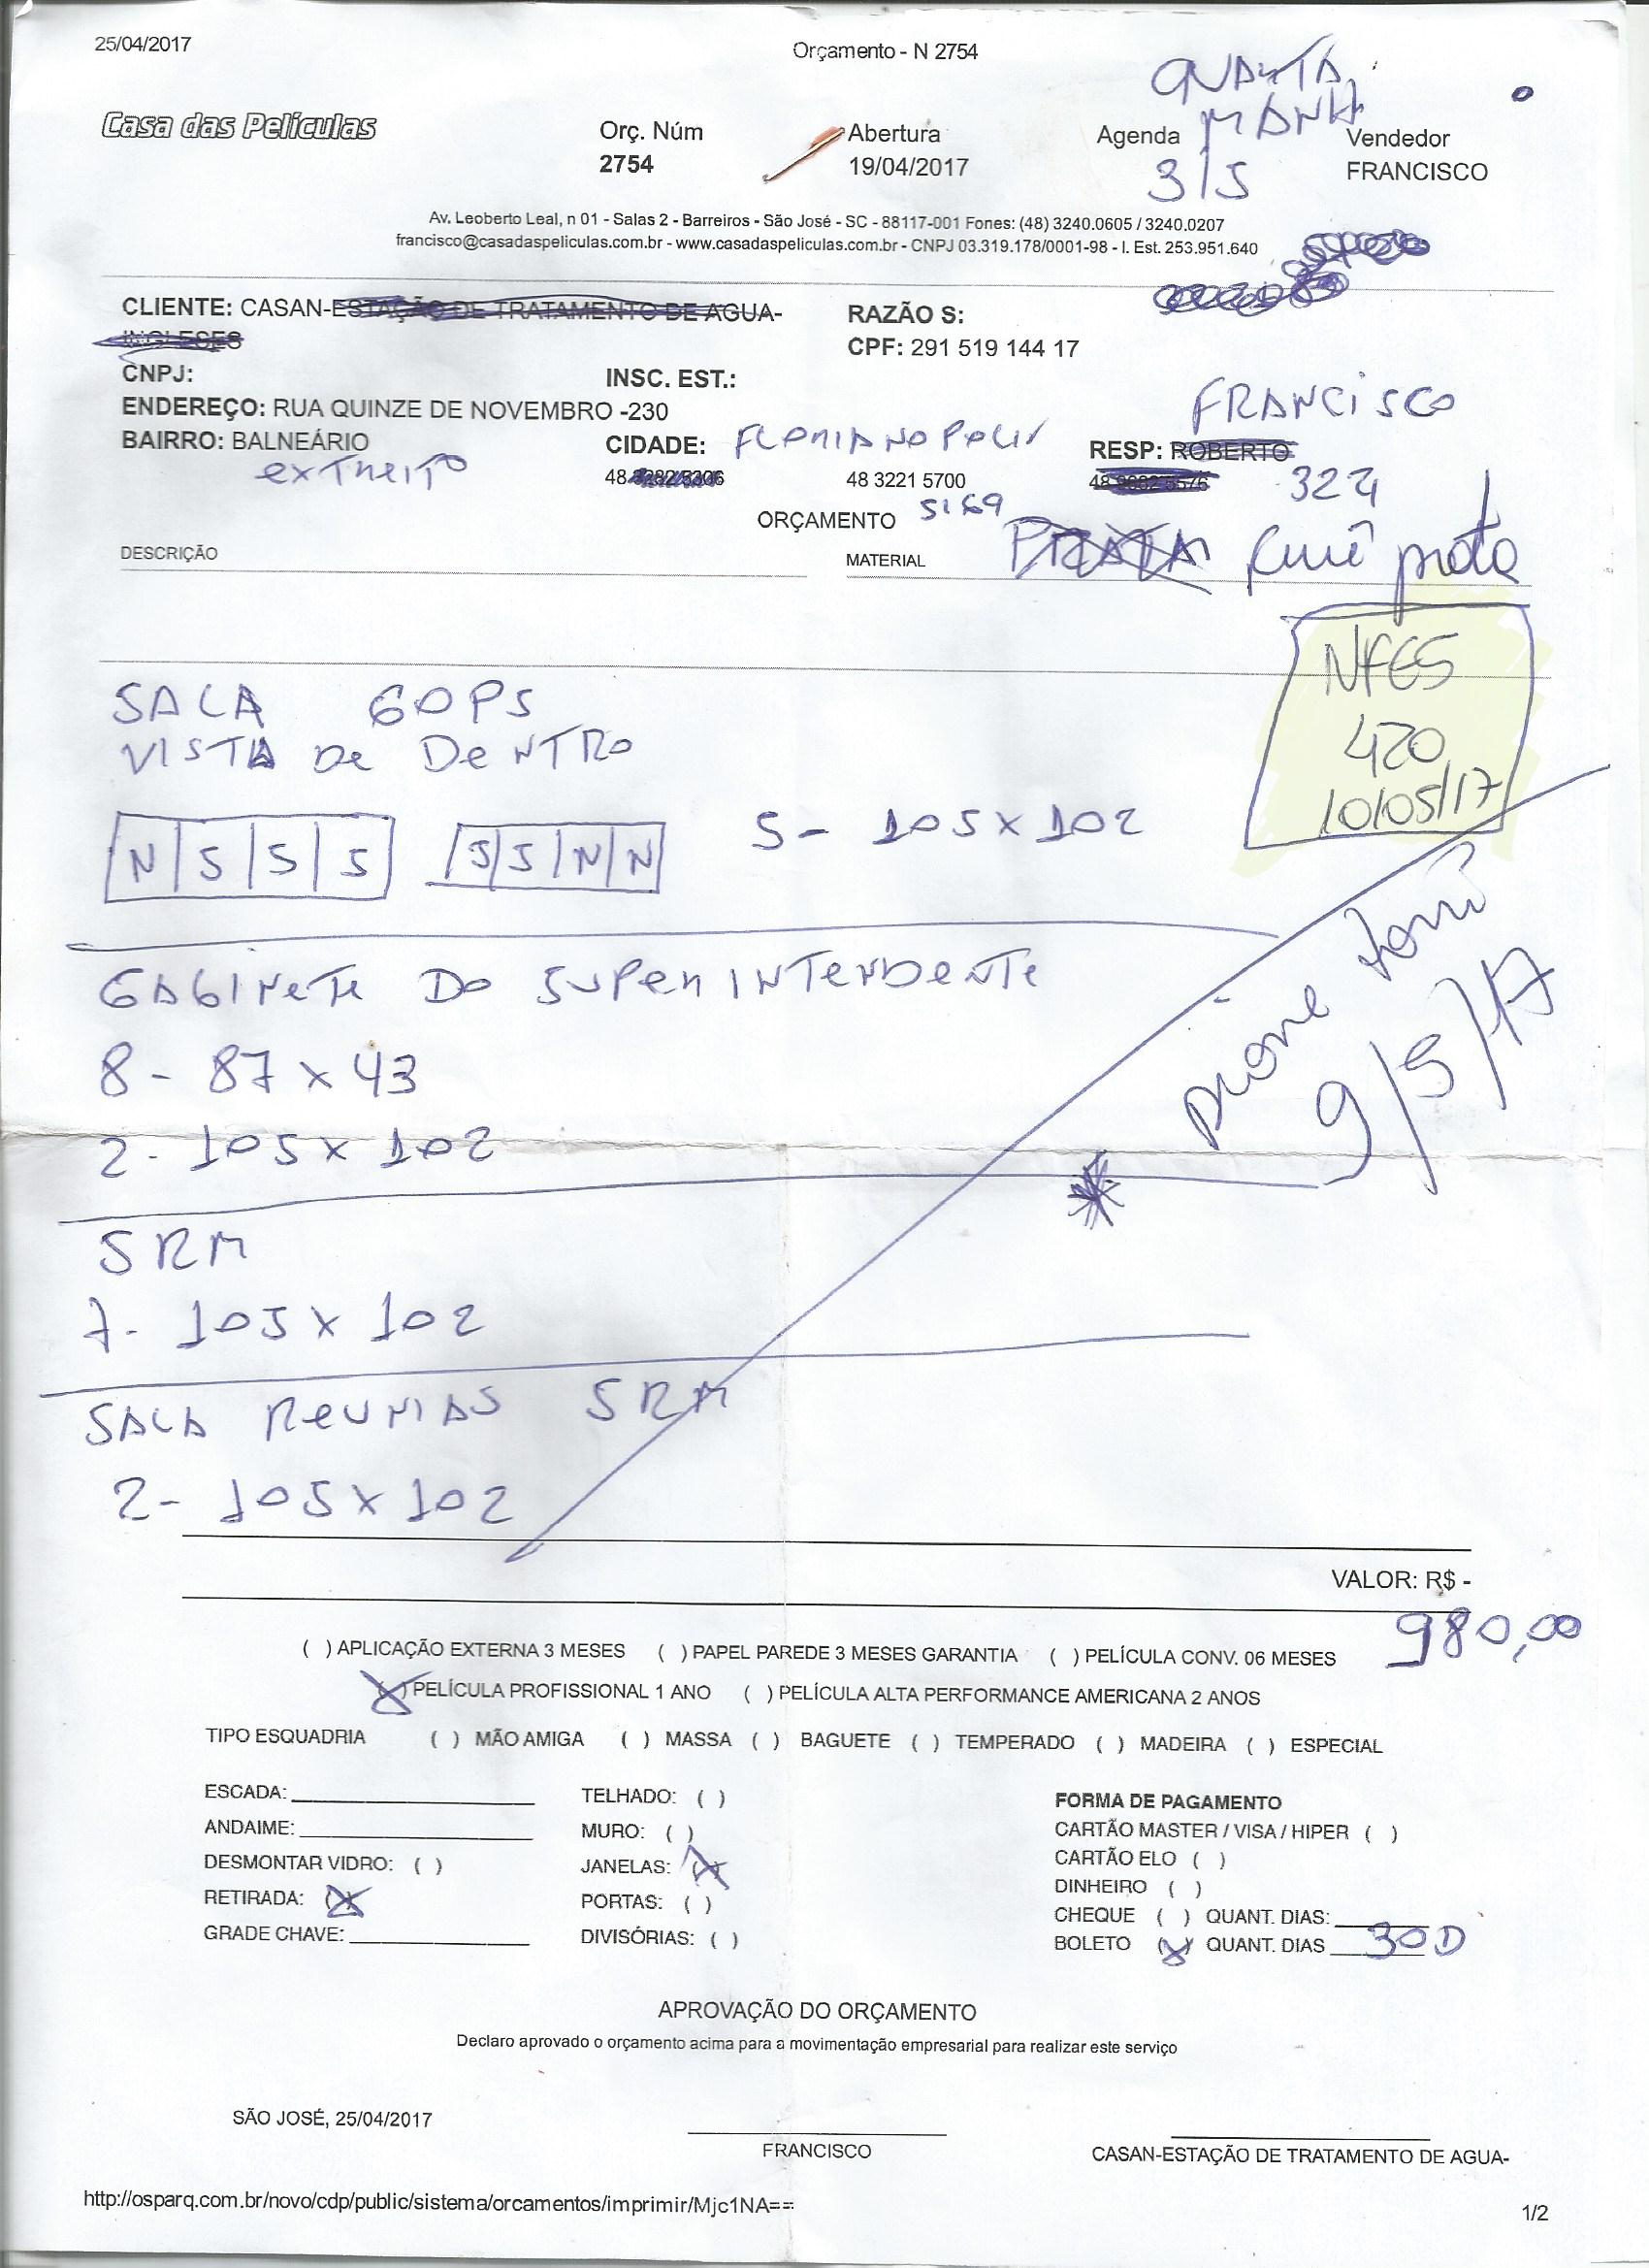 25/04/2017
Orçamento - N 2754
QUARTA
MANHÃ
3/5
Casa das Películas
Orç. Núm
2754
Abertura
19/04/2017
Agenda
Vendedor
FRANCISCO
Av. Leoberto Leal, n 01 - Salas 2 - Barreiros - São José - SC - 88117-001 Fones: (48) 3240.0605 / 3240.0207
francisco@casadaspeliculas.com.br - www.casadaspeliculas.com.br - CNPJ 03.319.178/0001-98 - I. Est. 253.951.640
CLIENTE: CASAN-ESTAÇÃO DE TRATAMENTO DE AGUA-
INGLESES
RAZÃO S:
CPF: 291 519 144 17
CNPJ:
INSC. EST.:
ENDEREÇO: RUA QUINZE DE NOVEMBRO -230
FRANCISCO
BAIRRO: BALNEÁRIO
CIDADE: FLORIANOPOLIS
RESP: ROBERTO
extreito
48
48 3221 5700
48
3224
ORÇAMENTO
5169
DESCRIÇÃO
MATERIAL
PRATA
fumê preto
NFES
420
10/05/17
SALA GOPS
VISTA De DeNTRO
N S S S
S S N N
5 - 105 x 102
GABINeTe Do SUPeRINTeNDeNTe
8 - 87 x 43
2 - 105 x 102
9/5/17
SRM
7 - 105 x 102
SALA ReUNIAS SRM
2 - 105 x 102
VALOR: R$ -
980,00
( ) APLICAÇÃO EXTERNA 3 MESES ( ) PAPEL PAREDE 3 MESES GARANTIA ( ) PELÍCULA CONV. 06 MESES
(X) PELÍCULA PROFISSIONAL 1 ANO ( ) PELÍCULA ALTA PERFORMANCE AMERICANA 2 ANOS
TIPO ESQUADRIA ( ) MÃO AMIGA ( ) MASSA ( ) BAGUETE ( ) TEMPERADO ( ) MADEIRA ( ) ESPECIAL
ESCADA:
ANDAIME:
DESMONTAR VIDRO: ( )
RETIRADA: (X)
GRADE CHAVE:
TELHADO: ( )
MURO: ( )
JANELAS: (X)
PORTAS: ( )
DIVISÓRIAS: ( )
FORMA DE PAGAMENTO
CARTÃO MASTER / VISA / HIPER ( )
CARTÃO ELO ( )
DINHEIRO ( )
CHEQUE ( ) QUANT. DIAS:
BOLETO (X) QUANT. DIAS 30D
APROVAÇÃO DO ORÇAMENTO
Declaro aprovado o orçamento acima para a movimentação empresarial para realizar este serviço
SÃO JOSÉ, 25/04/2017
FRANCISCO
CASAN-ESTAÇÃO DE TRATAMENTO DE AGUA-
http://osparq.com.br/novo/cdp/public/sistema/orcamentos/imprimir/Mjc1NA==
1/2